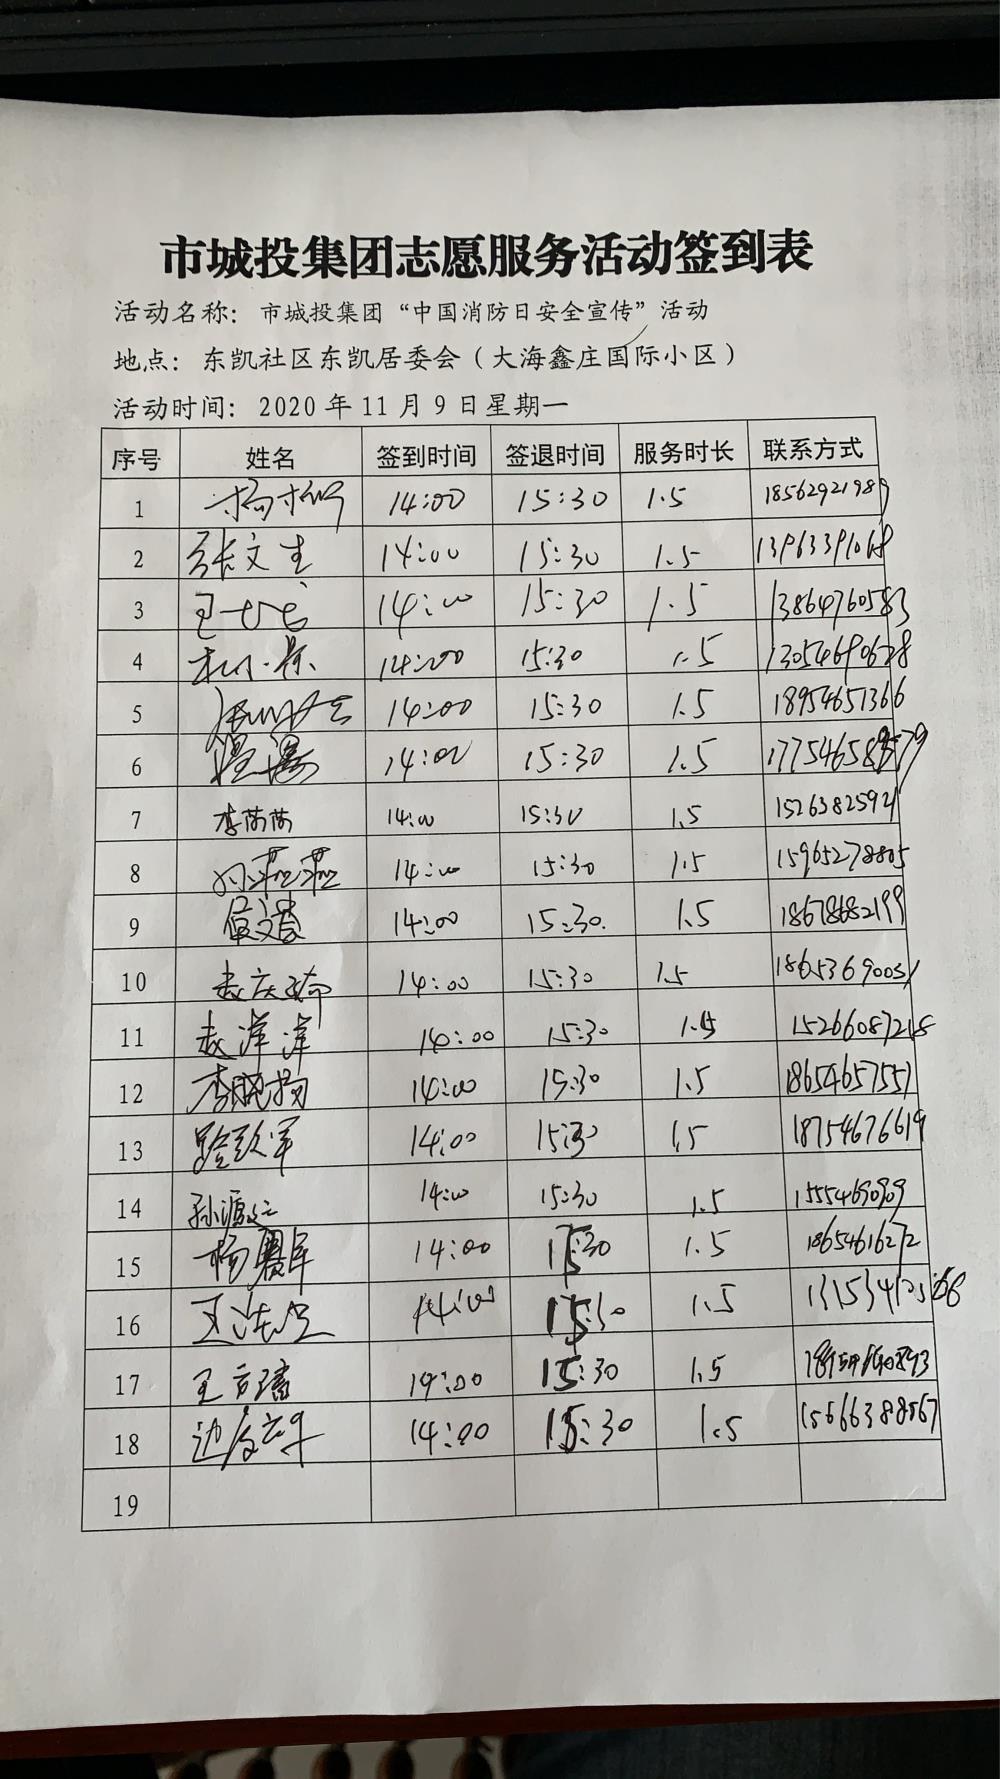 市城投集团志愿服务活动签到表
活动名称：市城投集团“中国消防日安全宣传”活动
地点：东凯社区东凯居委会（大海鑫庄国际小区）
活动时间：2020年11月9日星期一
序号 姓名 签到时间 签退时间 服务时长 联系方式
1 14:00 15:30 1.5 18562921989
2 张文生 14:00 15:30 1.5 13963391068
3 14:00 15:30 1.5 13864760583
4 14:00 15:30 1.5 13054690628
5 14:00 15:30 1.5 18954651366
6 14:00 15:30 1.5
7 李茜茜 14:00 15:30 1.5 15263825921
8 孙燕燕 14:00 15:30 1.5 15965278805
9 14:00 15:30. 1.5 18678682199
10 14:00 15:30 1.5 18653690051
11 赵洋洋 14:00 15:30 1.5 15266087218
12 14:00 15:30 1.5 18654657551
13 14:00 15:30 1.5 18754676619
14 14:00 15:30 1.5 15554690909
15 14:00 15:30 1.5 18654616272
16 14:00 15:30 1.5
17 14:00 15:30 1.5
18 14:00 15:30 1.5 15666388567
19